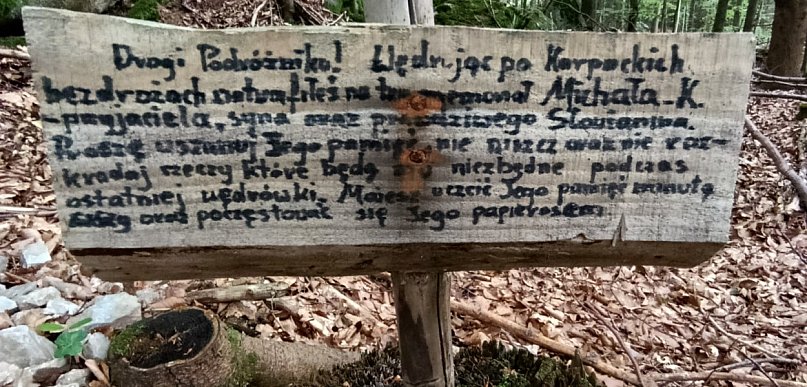 Drogi Podróżniku! Wędrując po Karpackich
bezdrożach natrafiłeś na ten memoriał Michała K.
- przyjaciela, syna oraz prawdziwego Słowianina.
Proszę uszanuj Jego pamięć, nie niszcz oraz nie roz-
kradaj rzeczy które będą Mu niezbędne podczas
ostatniej wędrówki. Możesz uczcić Jego pamięć minutą
ciszy oraz poczęstować się Jego papierosem